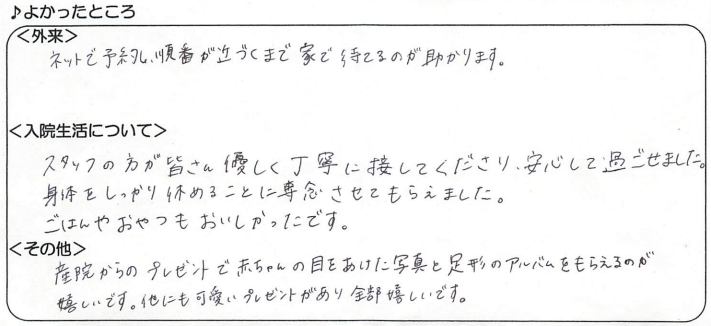 ♪よかったところ
＜外来＞
ネットで予約し、順番が近づくまで家で待てるのが助かります。
＜入院生活について＞
スタッフの方が皆さん優しく丁寧に接してくださり、安心して過ごせました。
身体をしっかり休めることに専念させてもらえました。
ごはんやおやつもおいしかったです。
＜その他＞
産院からのプレゼントで赤ちゃんの目をあけた写真と足形のアルバムをもらえるのが
嬉しいです。他にも可愛いプレゼントがあり全部嬉しいです。